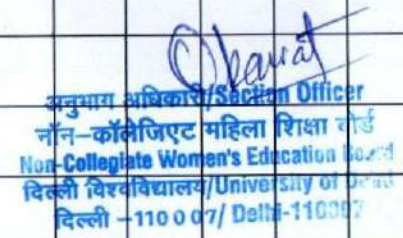 अनुभाग अधिकारी/Section Officer
नॉन-कॉलेजिएट महिला शिक्षा बोर्ड
Non-Collegiate Women's Education Board
दिल्ली विश्वविद्यालय/University of Delhi
दिल्ली -110007/ Delhi-110007